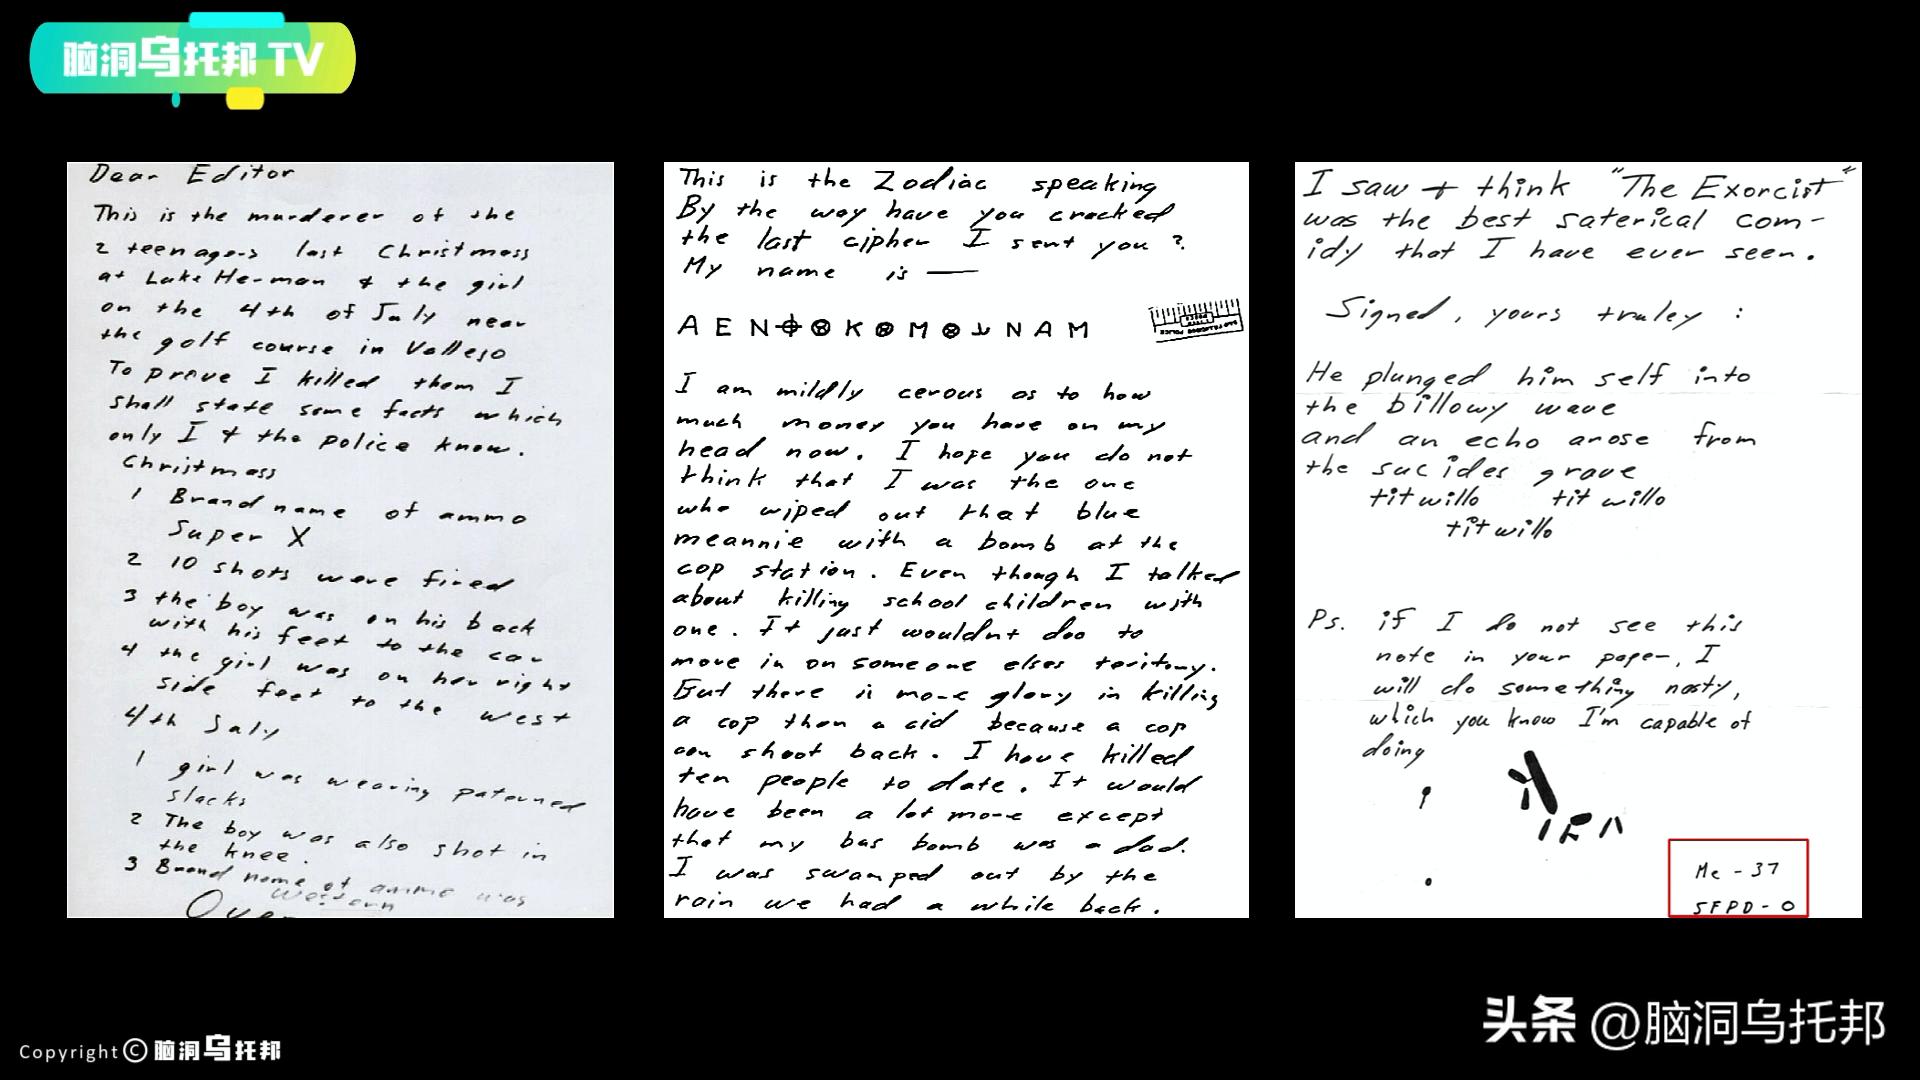 脑洞乌托邦 TV
Dear Editor
This is the murderer of the
2 teenagers last Christmass
at Lake Herman & the girl
on the 4th of July near
the golf course in Vallejo
To prove I killed them I
shall state some facts which
only I & the police know.
Christmass
1 Brand name of ammo
Super X
2 10 shots were fired
3 the boy was on his back
with his feet to the car
4 the girl was on her right
side feet to the west
4th July
1 girl was wearing paterned
slacks
2 The boy was also shot in
the knee.
3 Brand name of ammo was
western
Over
This is the Zodiac speaking
By the way have you cracked
the last cipher I sent you ?
My name is —
A E N K M N A M
I am mildly cerous as to how
much money you have on my
head now. I hope you do not
think that I was the one
who wiped out that blue
meannie with a bomb at the
cop station. Even though I talked
about killing school children with
one. It just wouldnt doo to
move in on someone elses teritory.
But there is more glory in killing
a cop than a cid because a cop
can shoot back. I have killed
ten people to date. It would
have been a lot more except
that my bus bomb was a dud.
I was swamped out by the
rain we had a while back.
I saw & think "The Exorcist"
was the best saterical com-
idy that I have ever seen.
Signed, yours truley :
He plunged him self into
the billowy wave
and an echo arose from
the sucides grave
tit willo tit willo
tit willo
Ps. if I do not see this
note in your paper, I
will do something nasty,
which you know I'm capable of
doing
Me - 37
SFPD - 0
Copyright © 脑洞乌托邦
头条 @脑洞乌托邦